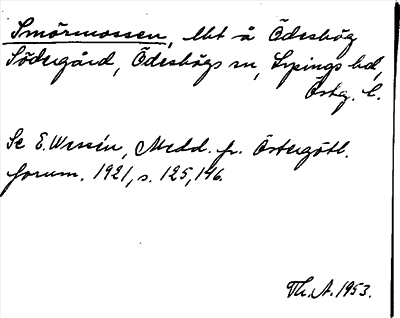 Smörmossen, lht å Ödeshög
Södergård, Ödeshögs sn, Lysings hd,
Östg. l.
Se E. Wessén, Medd. fr. Östergötl.
fornm. 1921, s. 125, 146.
Th. A. 1953.